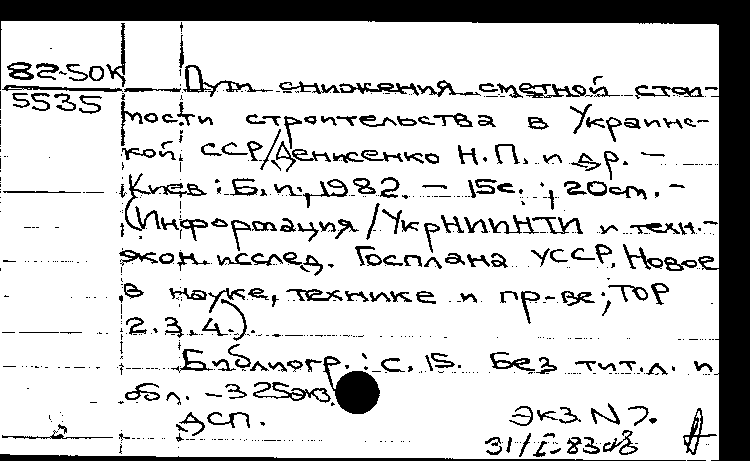 82-50К
5535
Пути снижения сметной стои-
мости строительства в Украинс-
кой ССР/Денисенко Н.П. и др. –
Киев : Б.и., 1982. – 15с. ; 20см. –
(Информация / УкрНИИНТИ и техн.-
экон. исслед. Госплана УССР. Новое
в науке, технике и пр-ве; ТОР
2.3.4.).
Библиогр. : с. 15. Без тит.л. и
обл. – 325экз.
ДСП.
Экз. N 7.
31/I-83